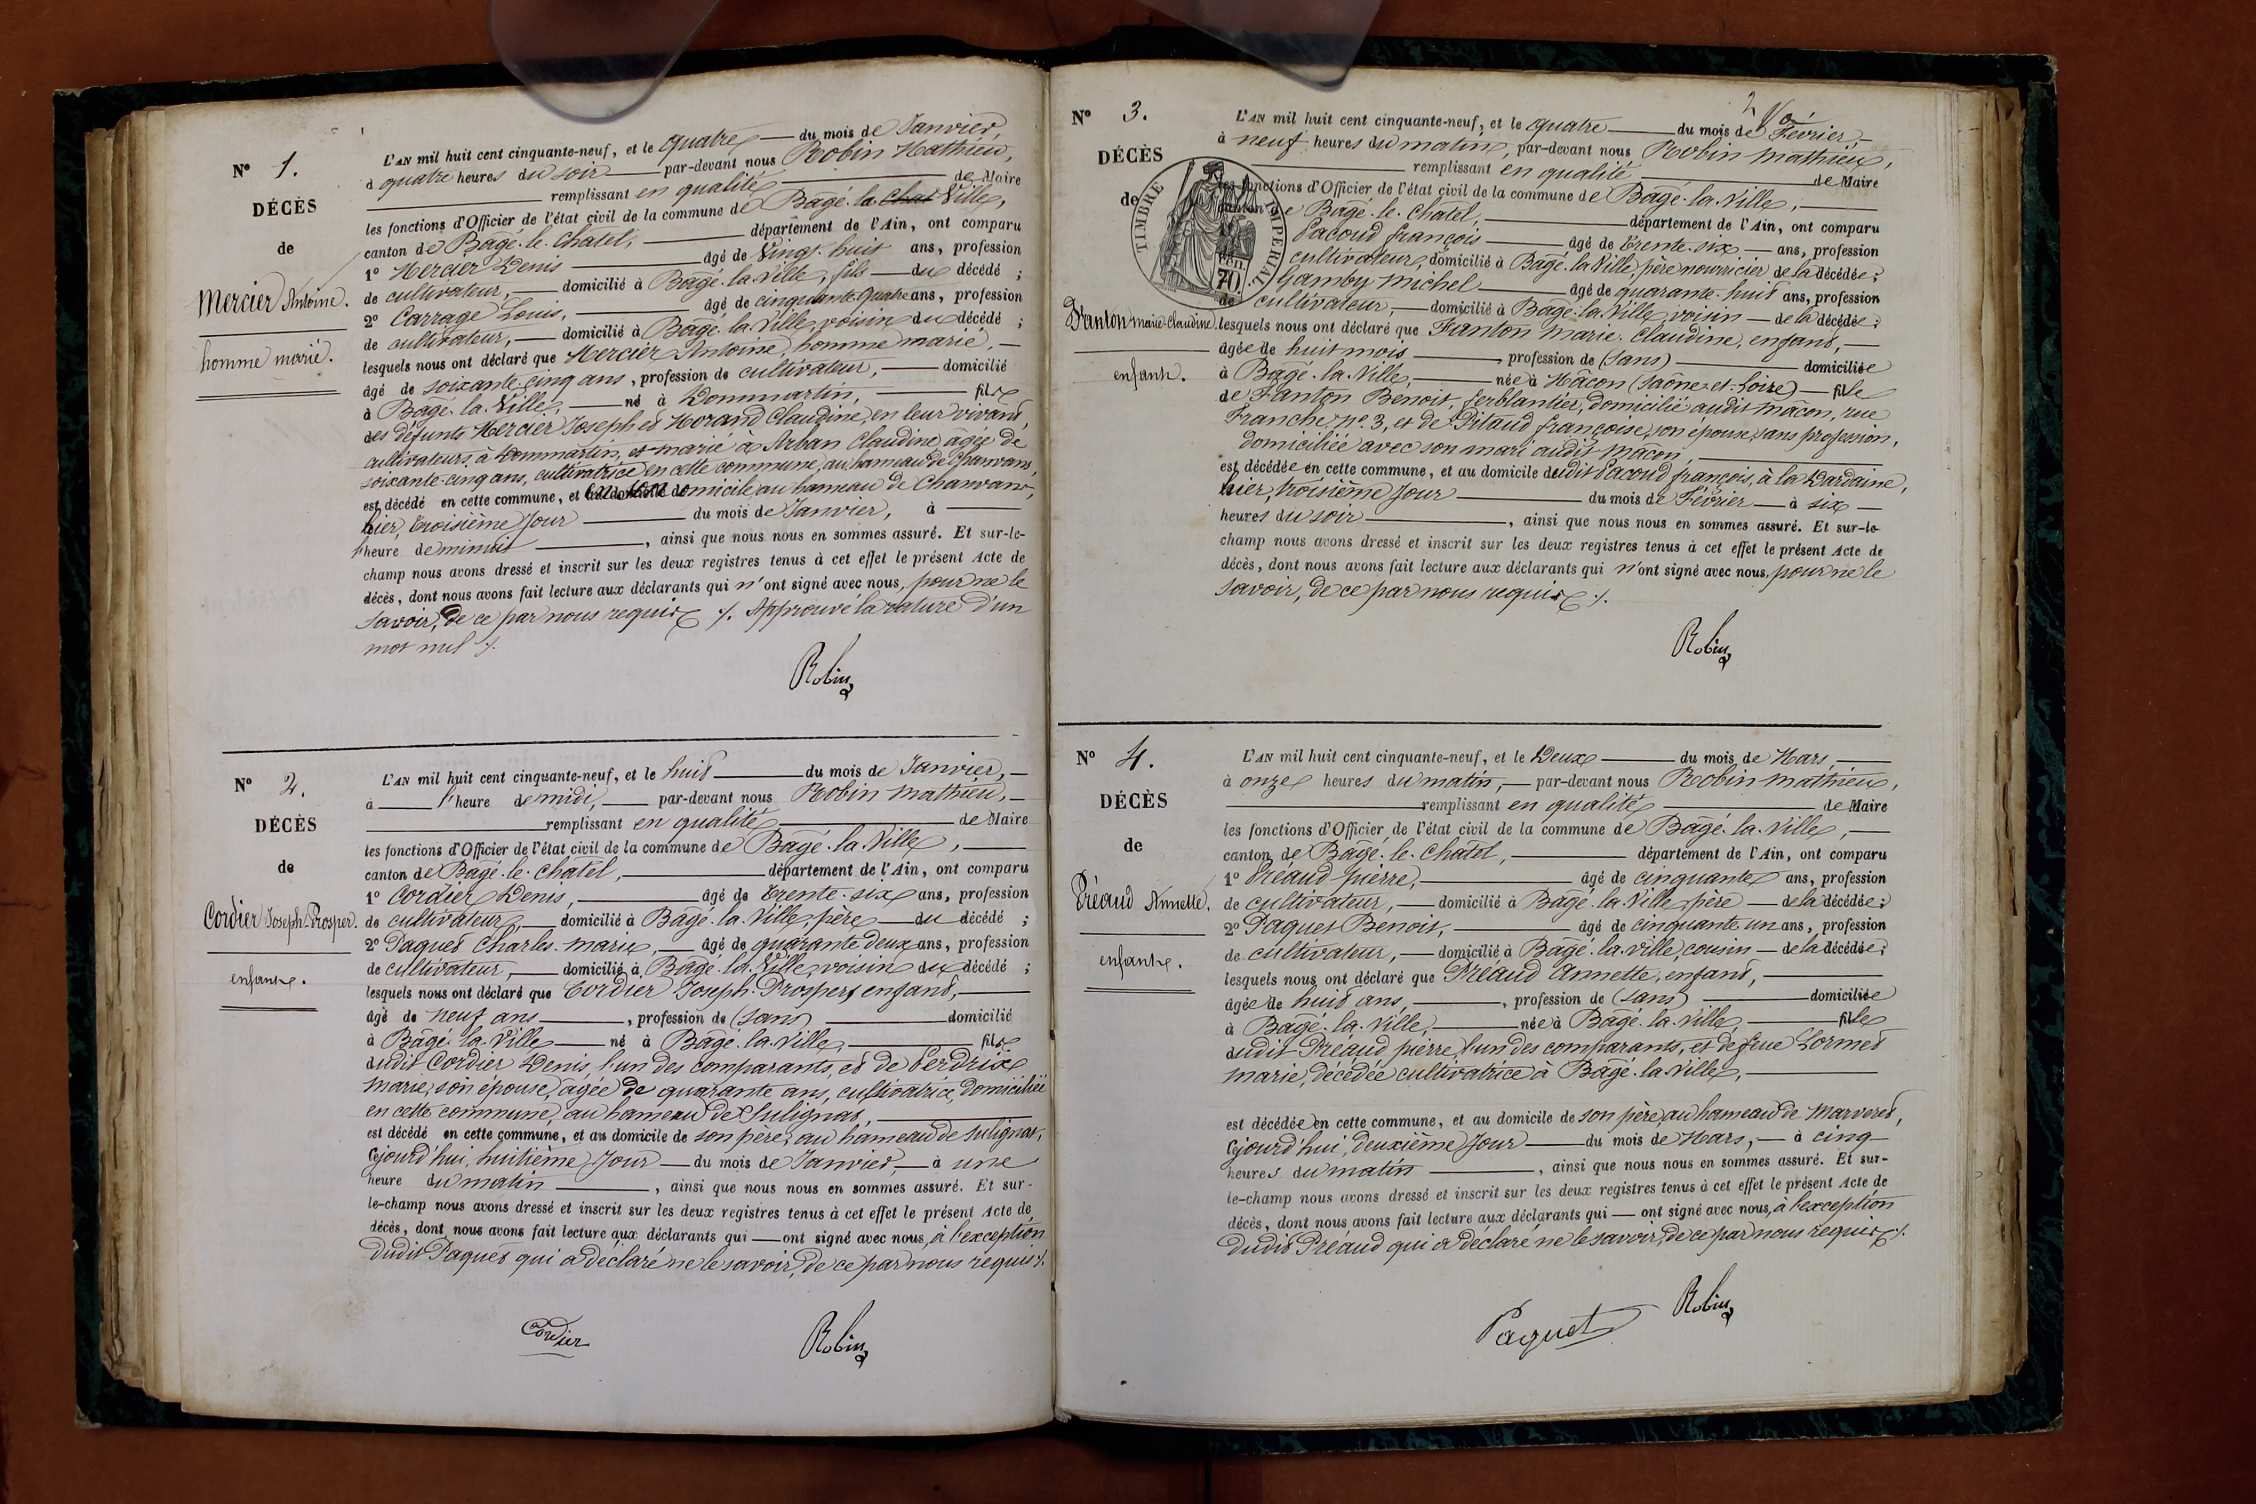 N° 1.
DÉCÈS
de
Mercier Antoine.
homme marié.
L'AN mil huit cent cinquante-neuf, et le quatre du mois de Janvier,
à quatre heures du soir par-devant nous Robin Mathieu,
remplissant en qualité de Maire
les fonctions d'Officier de l'état civil de la commune de Bâgé-la-Chat Ville,
canton de Bâgé-le-Châtel, département de l'Ain, ont comparu
1° Mercier Denis âgé de Vingt-huit ans, profession
de cultivateur, domicilié à Bâgé-la-Ville, fils du décédé ;
2° Carrage Louis, âgé de cinquante-quatre ans, profession
de cultivateur, domicilié à Bâgé-la-Ville, voisin du décédé ;
lesquels nous ont déclaré que Mercier Antoine, homme marié,
âgé de soixante-cinq ans, profession de cultivateur, domicilié
à Bâgé-la-Ville, né à Dommartin, fils
des défunts Mercier Joseph et Morand Claudine, en leur vivant,
cultivateurs à Dommartin, et marié à Arban Claudine, âgée de
soixante-cinq ans, cultivatrice en cette commune, au hameau de Charvans,
est décédé en cette commune, et en son domicile au hameau de Charvans,
hier, troisième Jour du mois de Janvier, à
l'heure de minuit, ainsi que nous nous en sommes assuré. Et sur-le-
champ nous avons dressé et inscrit sur les deux registres tenus à cet effet le présent Acte de
décès, dont nous avons fait lecture aux déclarants qui n'ont signé avec nous, pour ne le
savoir, de ce par nous requis ./. Approuvé la rature d'un
mot nul ./.
Robin
N° 2.
DÉCÈS
de
Cordier Joseph-Prosper.
enfant.
L'AN mil huit cent cinquante-neuf, et le huit du mois de Janvier,
à l'heure de midi, par-devant nous Robin Mathieu,
remplissant en qualité de Maire
les fonctions d'Officier de l'état civil de la commune de Bâgé-la-Ville,
canton de Bâgé-le-Châtel, département de l'Ain, ont comparu
1° Cordier Denis, âgé de trente-six ans, profession
de cultivateur, domicilié à Bâgé-la-Ville, père du décédé ;
2° Paquet Charles-Marie, âgé de quarante-deux ans, profession
de cultivateur, domicilié à Bâgé-la-Ville, voisin du décédé ;
lesquels nous ont déclaré que Cordier Joseph-Prosper, enfant,
âgé de neuf ans, profession de (sans) domicilié
à Bâgé-la-Ville né à Bâgé-la-Ville, fils
dudit Cordier Denis, l'un des comparants, et de Perdrix
Marie, son épouse, âgée de quarante ans, cultivatrice, domiciliée
en cette commune, au hameau de Sulignat,
est décédé en cette commune, et au domicile de son père, au hameau de Sulignat,
Cejourd'hui, huitième Jour du mois de Janvier, à une
heure du matin, ainsi que nous nous en sommes assuré. Et sur-
le-champ nous avons dressé et inscrit sur les deux registres tenus à cet effet le présent Acte de
décès, dont nous avons fait lecture aux déclarants qui ont signé avec nous, à l'exception
dudit Paquet qui a déclaré ne le savoir, de ce par nous requis ./.
Cordier
Robin
2
N° 3.
DÉCÈS
de
TIMBRE IMPÉRIAL
70
Fanton Marie-Claudine.
enfant.
L'AN mil huit cent cinquante-neuf, et le quatre du mois de Février,
à neuf heures du matin, par-devant nous Robin Mathieu,
remplissant en qualité de Maire
les fonctions d'Officier de l'état civil de la commune de Bâgé-la-Ville,
canton de Bâgé-le-Châtel, département de l'Ain, ont comparu
Pacoud François âgé de trente-six ans, profession
cultivateur, domicilié à Bâgé-la-Ville, père nourricier de la décédée ;
Gamby Michel âgé de quarante-huit ans, profession
de cultivateur, domicilié à Bâgé-la-Ville, voisin de la décédée ;
lesquels nous ont déclaré que Fanton Marie-Claudine, enfant,
âgée de huit mois, profession de (sans) domiciliée
à Bâgé-la-Ville, née à Mâcon (Saône-et-Loire) fille
de Fanton Benoit, ferblantier, domicilié audit Mâcon, rue
Franche, n° 3, et de Pitaud Françoise, son épouse, sans profession,
domiciliée avec son mari audit Mâcon,
est décédée en cette commune, et au domicile dudit Pacoud François, à la Dardaine,
hier, troisième Jour du mois de Février à six
heures du soir, ainsi que nous nous en sommes assuré. Et sur-le-
champ nous avons dressé et inscrit sur les deux registres tenus à cet effet le présent Acte de
décès, dont nous avons fait lecture aux déclarants qui n'ont signé avec nous, pour ne le
savoir, de ce par nous requis ./.
Robin
N° 4.
DÉCÈS
de
Préaud Annette.
enfant.
L'AN mil huit cent cinquante-neuf, et le Deux du mois de Mars,
à onze heures du matin, par-devant nous Robin Mathieu,
remplissant en qualité de Maire
les fonctions d'Officier de l'état civil de la commune de Bâgé-la-Ville,
canton de Bâgé-le-Châtel, département de l'Ain, ont comparu
1° Préaud Pierre, âgé de cinquante ans, profession
de cultivateur, domicilié à Bâgé-la-Ville, père de la décédée ;
2° Paquet Benoit, âgé de cinquante un ans, profession
de cultivateur, domicilié à Bâgé-la-Ville, cousin de la décédée ;
lesquels nous ont déclaré que Préaud Annette, enfant,
âgée de huit ans, profession de (sans) domiciliée
à Bâgé-la-Ville, née à Bâgé-la-Ville, fille
dudit Préaud Pierre, l'un des comparants, et de feue Lormet
Marie, décédée cultivatrice à Bâgé-la-Ville,
est décédée en cette commune, et au domicile de son père, au hameau de Marveret,
Cejourd'hui, deuxième Jour du mois de Mars, à cinq
heures du matin, ainsi que nous nous en sommes assuré. Et sur-
le-champ nous avons dressé et inscrit sur les deux registres tenus à cet effet le présent Acte de
décès, dont nous avons fait lecture aux déclarants qui ont signé avec nous, à l'exception
dudit Préaud qui a déclaré ne le savoir, de ce par nous requis ./.
Paquet
Robin